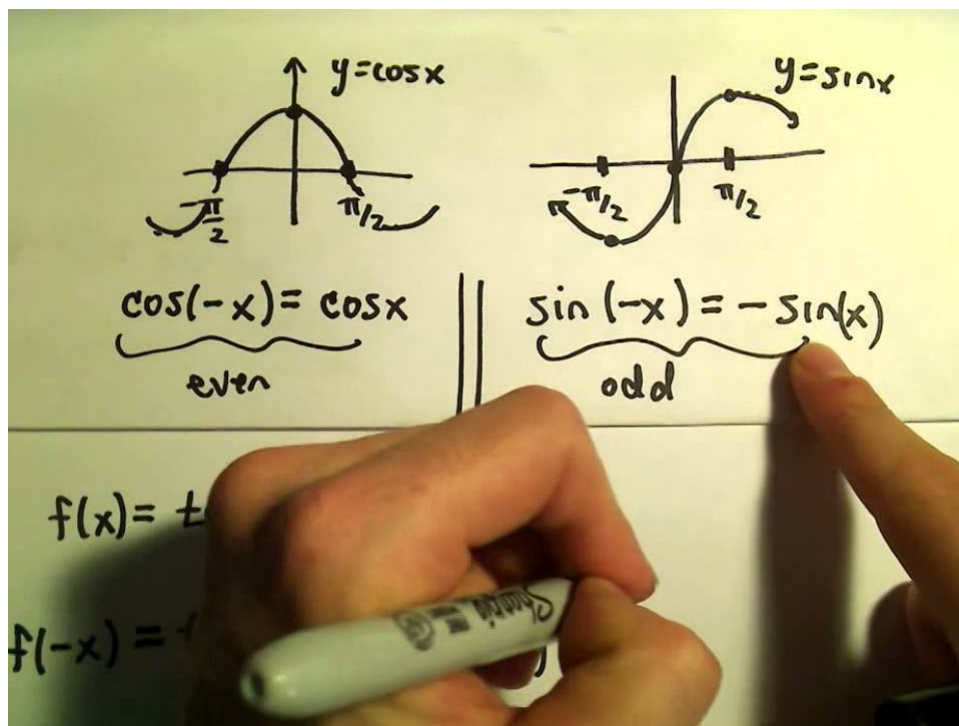 y=cosx
-π/2
π/2
y=sinx
-π/2
π/2
cos(-x) = cosx
even
sin(-x) = -sin(x)
odd
f(x) = t
f(-x) =
Sharpie